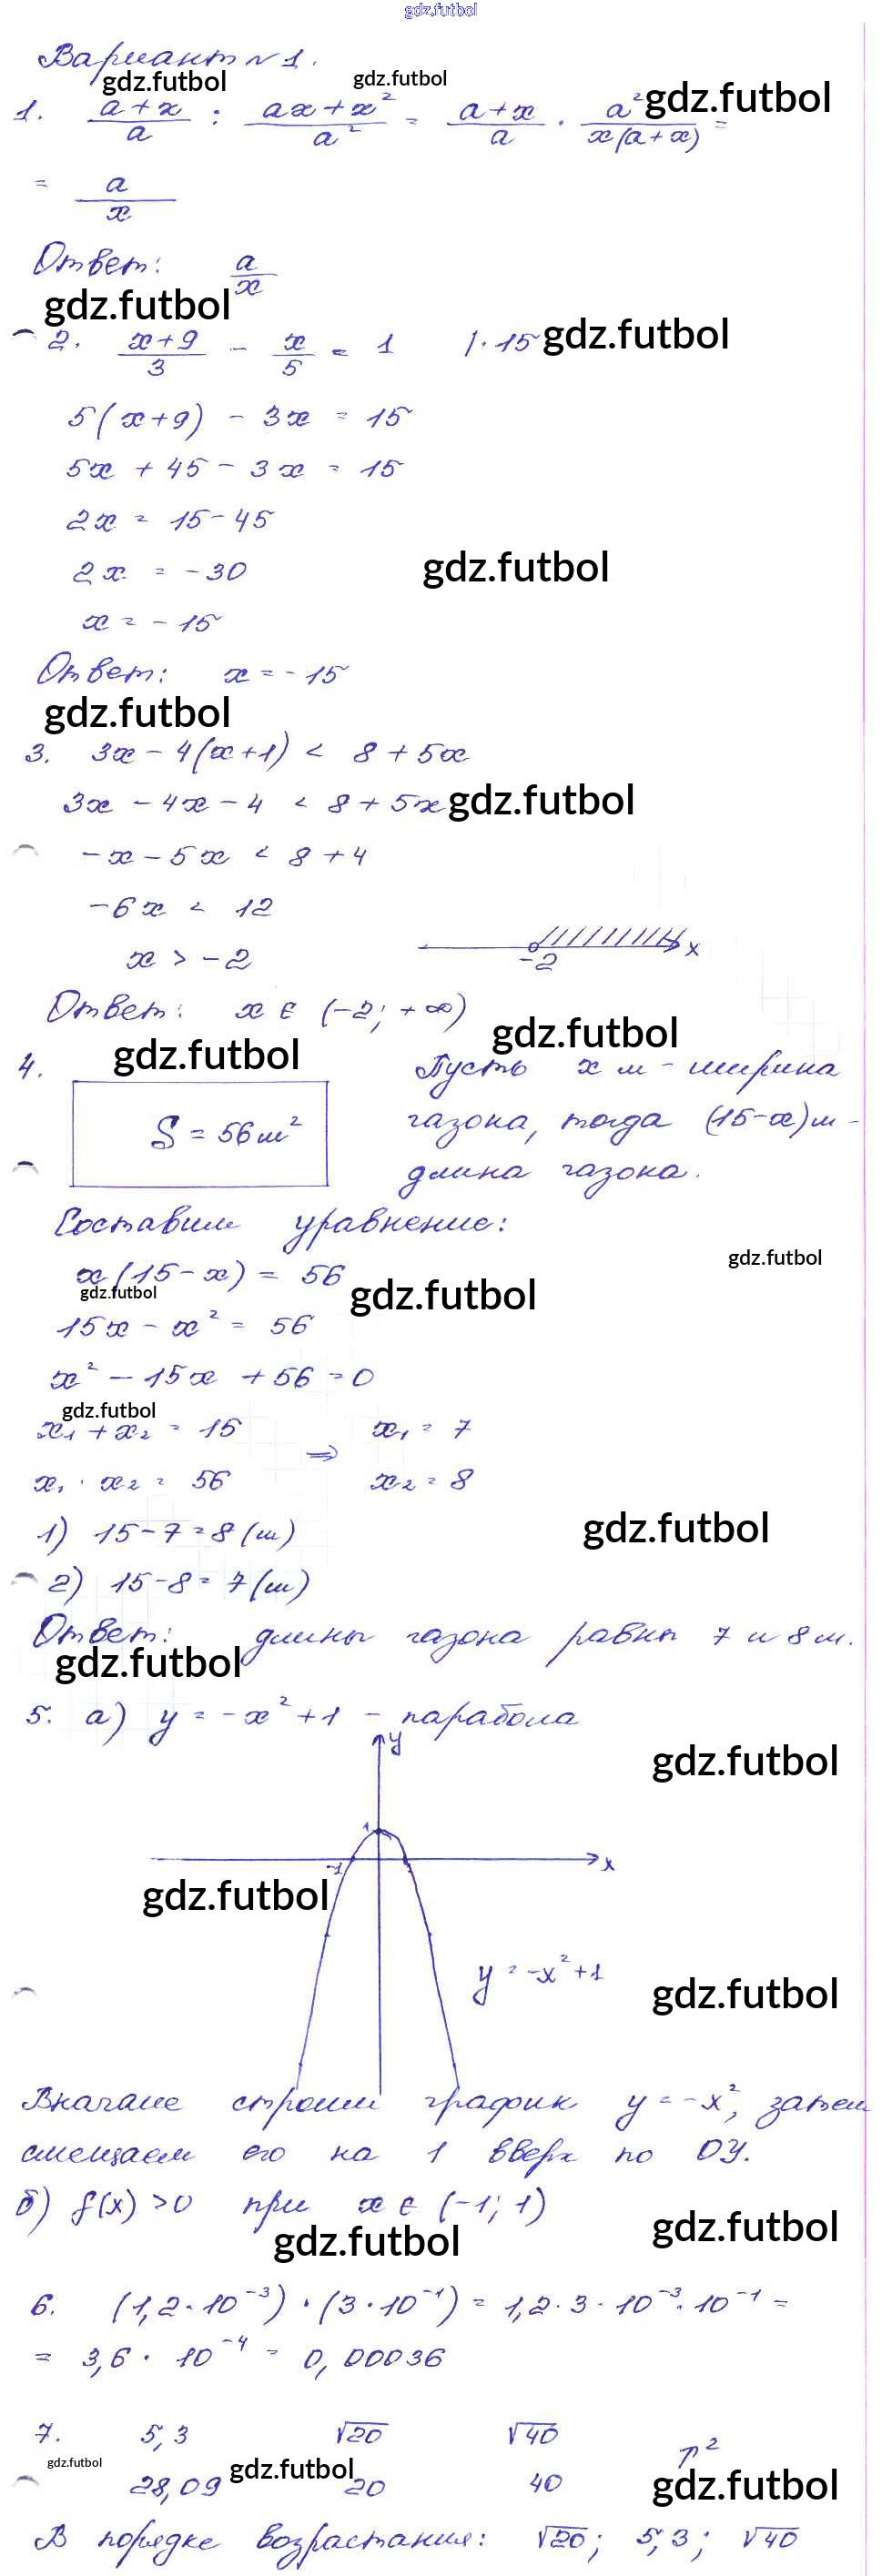 gdz.futbol
Вариант №1.
gdz.futbol gdz.futbol
1. (a+x)/a : (ax+x²)/a² = (a+x)/a · a²/(x(a+x)) = gdz.futbol
= a/x
Ответ: a/x
gdz.futbol
2. (x+9)/3 - x/5 = 1 |·15 gdz.futbol
5(x+9) - 3x = 15
5x + 45 - 3x = 15
2x = 15-45
2x = -30 gdz.futbol
x = -15
Ответ: x = -15
gdz.futbol
3. 3x - 4(x+1) < 8 + 5x
3x - 4x - 4 < 8 + 5x gdz.futbol
-x - 5x < 8 + 4
-6x < 12
x > -2
-2 x
Ответ: x ∈ (-2; +∞)
gdz.futbol gdz.futbol
4. S = 56 м²
Пусть x м - ширина
газона, тогда (15-x) м -
длина газона.
Составим уравнение:
gdz.futbol
x(15-x) = 56
gdz.futbol gdz.futbol
15x - x² = 56
x² - 15x + 56 = 0
gdz.futbol
x₁ + x₂ = 15 ⇒ x₁ = 7
x₁ · x₂ = 56 x₂ = 8
1) 15-7=8 (м) gdz.futbol
2) 15-8=7 (м)
Ответ: длины газона равны 7 и 8 м.
gdz.futbol
5. а) y = -x² + 1 - парабола
y
gdz.futbol
1
-1 x
gdz.futbol
y = -x² + 1
gdz.futbol
Вначале строим график y = -x², затем
смещаем его на 1 вверх по OY.
б) f(x) > 0 при x ∈ (-1; 1)
gdz.futbol gdz.futbol
6. (1,2·10⁻³)·(3·10⁻¹) = 1,2·3·10⁻³·10⁻¹ =
= 3,6·10⁻⁴ = 0,00036
7. 5,3 √20 √40 ↑²
gdz.futbol gdz.futbol
28,09 20 40 gdz.futbol
В порядке возрастания: √20; 5,3; √40